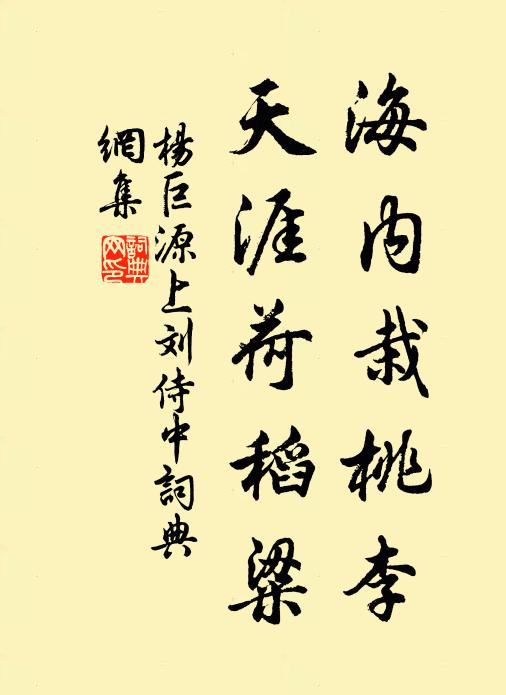 海内栽桃李
天涯荷稻粱
楊巨源上刘侍中詞典
網集
詞典
网印